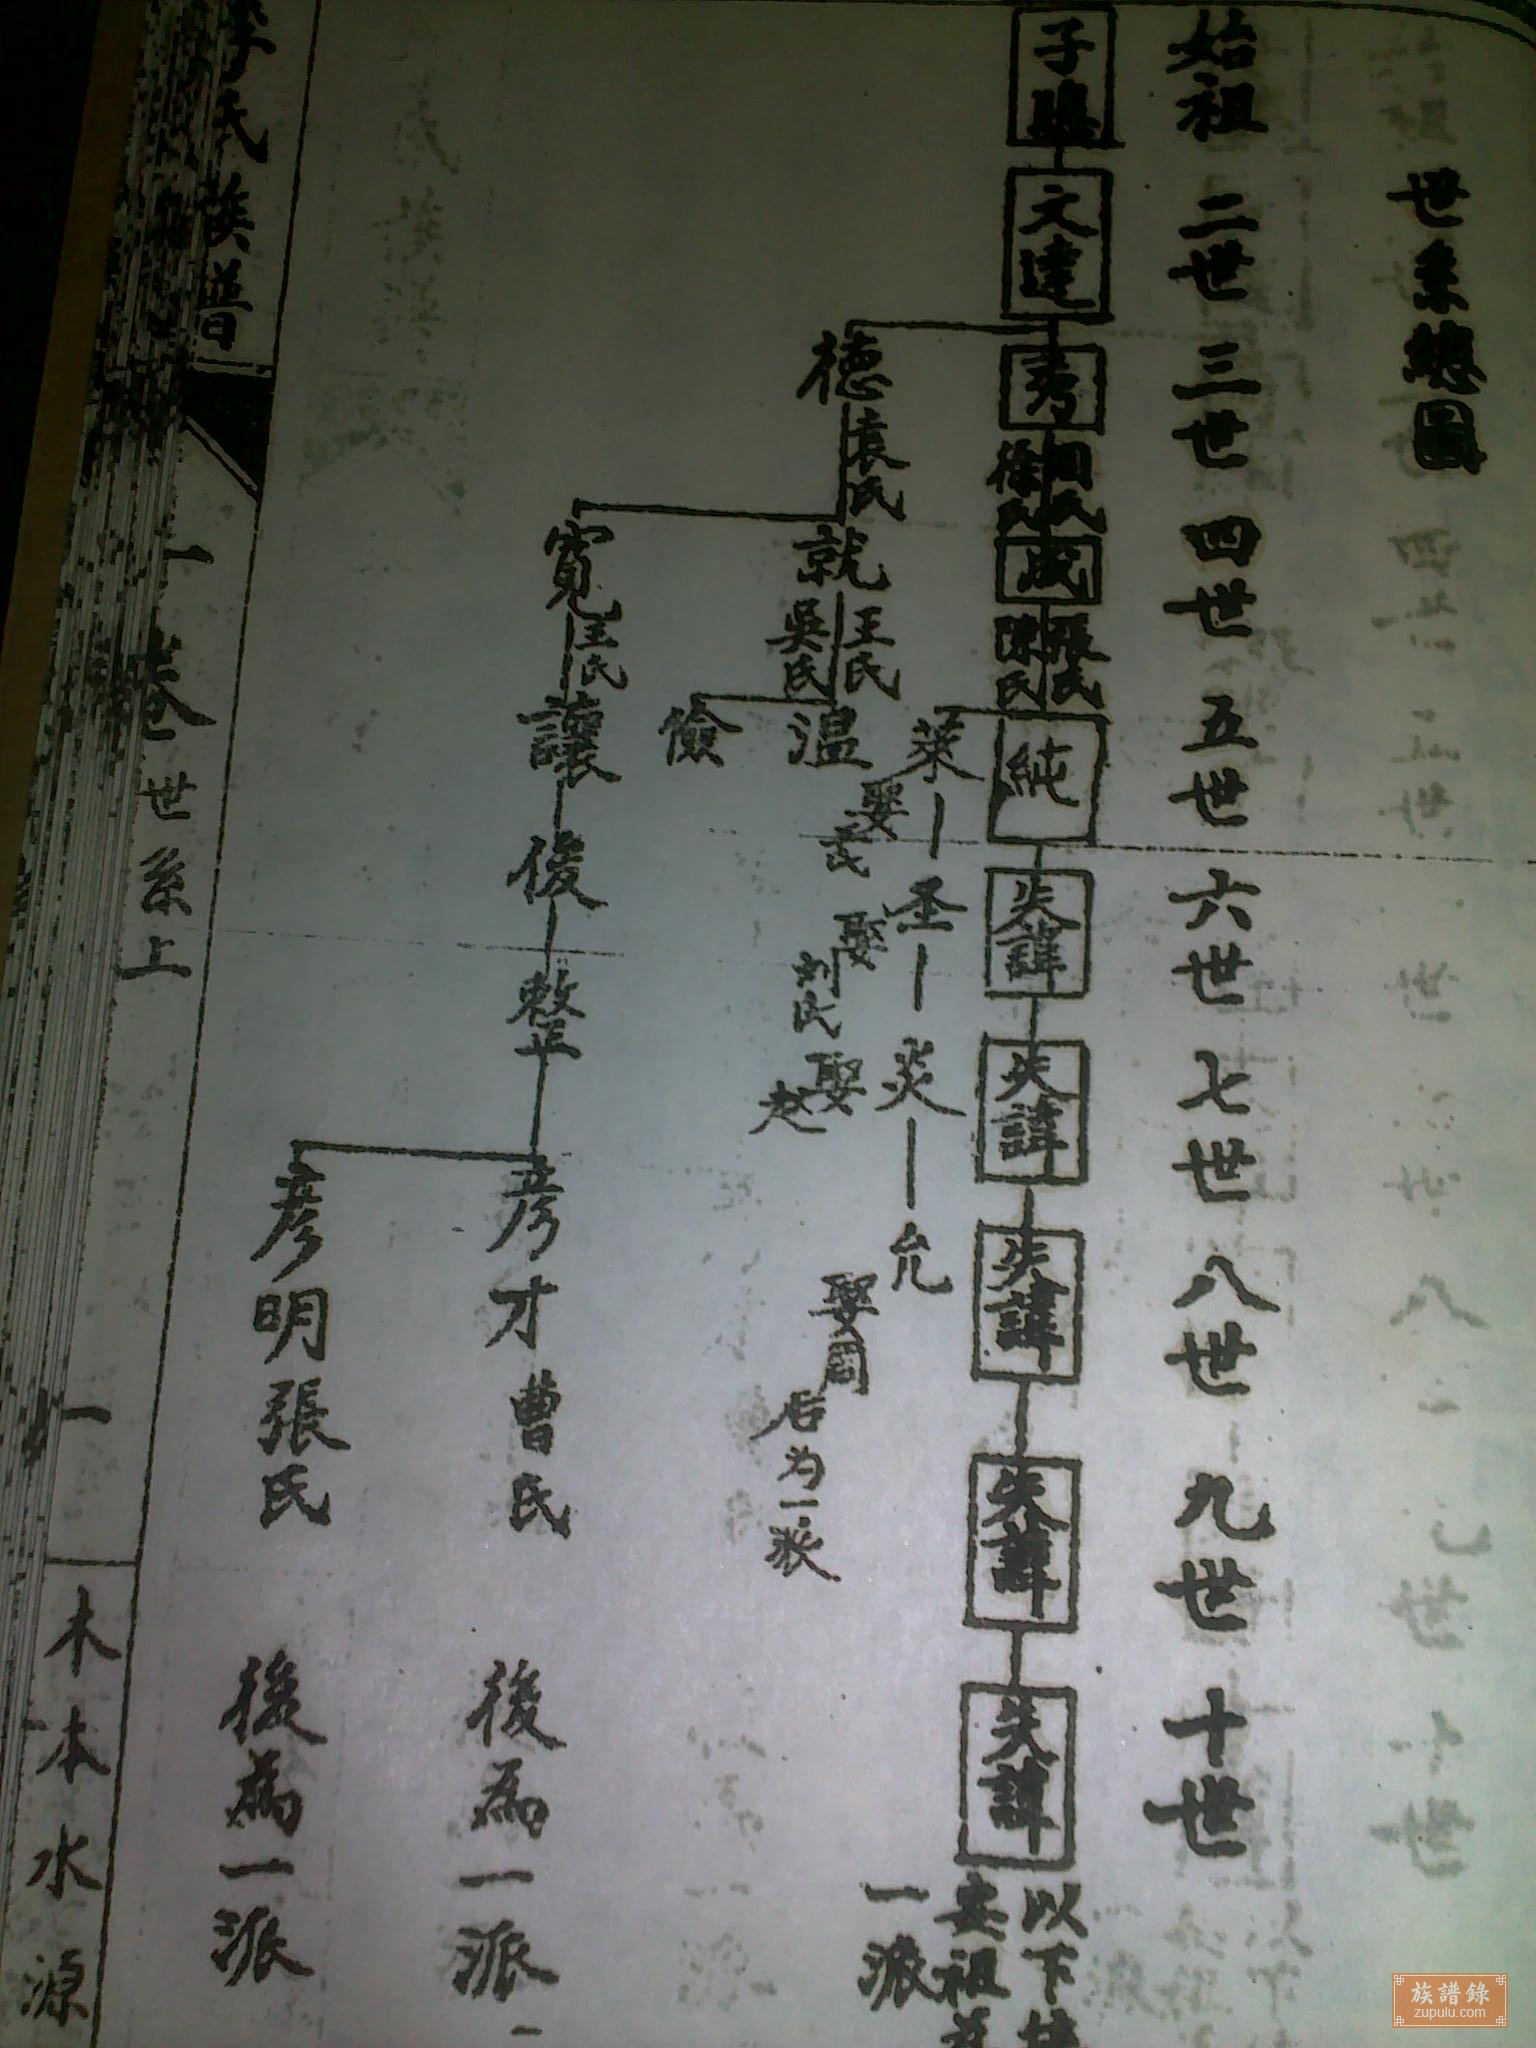 世系總圖
始祖 二世 三世 四世 五世 六世 七世 八世 九世 十世
子
文達
秀
徐氏
成
張氏
陳氏
純
失諱
失諱
失諱
失諱
失諱
以下
安祖
一派
萊
娶 氏
圣
娶刘氏
炎
娶赵
允
娶周
后为一派
德
袁氏
就
王氏
吳氏
温
儉
寬
王氏
讓
俊
整
彥才
曹氏
後為一派
彥明
張氏
後為一派
李氏族譜
一卷
世系上
一
木本水源
族譜錄
zupulu.com